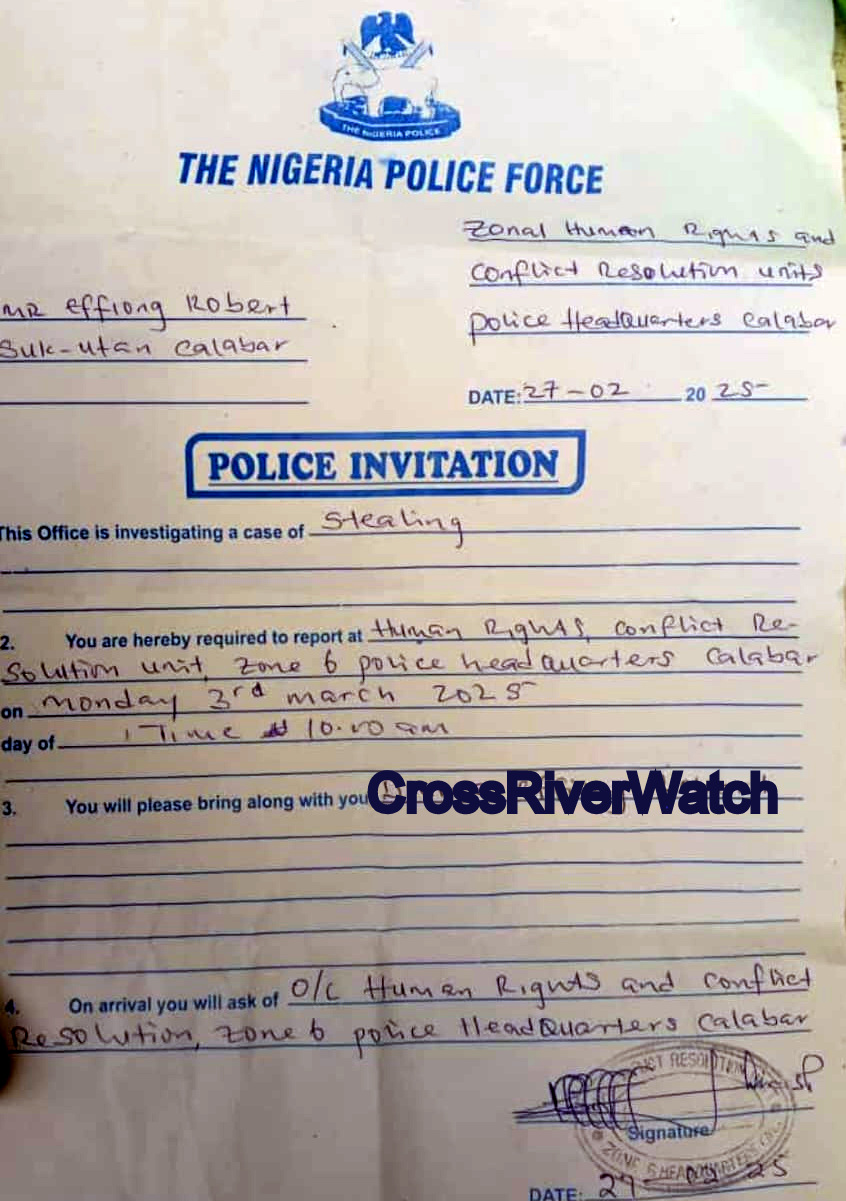 THE NIGERIA POLICE
THE NIGERIA POLICE FORCE
Zonal Human Rights and
Conflict Resolution units
Police HeadQuarters Calabar
MR Effiong Robert
Suk-utan Calabar
DATE: 27-02 2025
POLICE INVITATION
This Office is investigating a case of Stealing
2. You are hereby required to report at Human Rights, Conflict Re-
solution unit, Zone 6 police headquarters Calabar
on monday 3rd march 2025
day of Time 10.00 am
3. You will please bring along with you
CrossRiverWatch
4. On arrival you will ask of O/C Human Rights and Conflict
Resolution, Zone 6 police HeadQuarters Calabar
Signature
DATE: 27-02 25